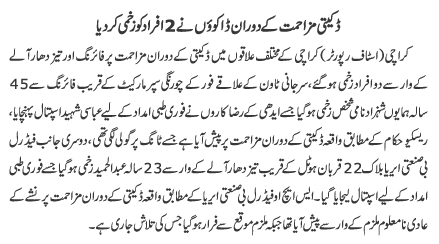 ڈکیتی مزاحمت کے دوران ڈاکوؤں نے 2 افراد کو زخمی کردیا
کراچی (اسٹاف رپورٹر) کراچی کے مختلف علاقوں میں ڈکیتی کے دوران مزاحمت پر فائرنگ اور تیز دھار آلے
کے وار سے دو افراد زخمی ہوگئے، سرجانی ٹاؤن کے علاقے فور کے چورنگی سپر مارکیٹ کے قریب فائرنگ سے 45
سالہ ہمایوں شہزاد نامی شخص زخمی ہوگیا جسے ایدھی کے رضا کاروں نے فوری طبی امداد کے لیے عباسی شہید اسپتال پہنچایا،
ریسکیو حکام کے مطابق واقعہ ڈکیتی کے دوران مزاحمت پر پیش آیا ہے جسے ٹانگ پر گولی لگی تھی، دوسری جانب فیڈرل
بی صنعتی ایریا بلاک 22 قربان ہوٹل کے قریب تیز دھار آلے کے وار سے 23 سالہ عبدالحمید زخمی ہوگیا جسے فوری طبی
امداد کے لیے اسپتال لیجایا گیا۔ ایس ایچ او فیڈرل بی صنعتی ایریا کے مطابق واقعہ ڈکیتی کے دوران مزاحمت پر نشے کے
عادی نامعلوم ملزم کے وار سے پیش آیا تھا جبکہ ملزم موقع سے فرار ہوگیا جس کی تلاش جاری ہے۔